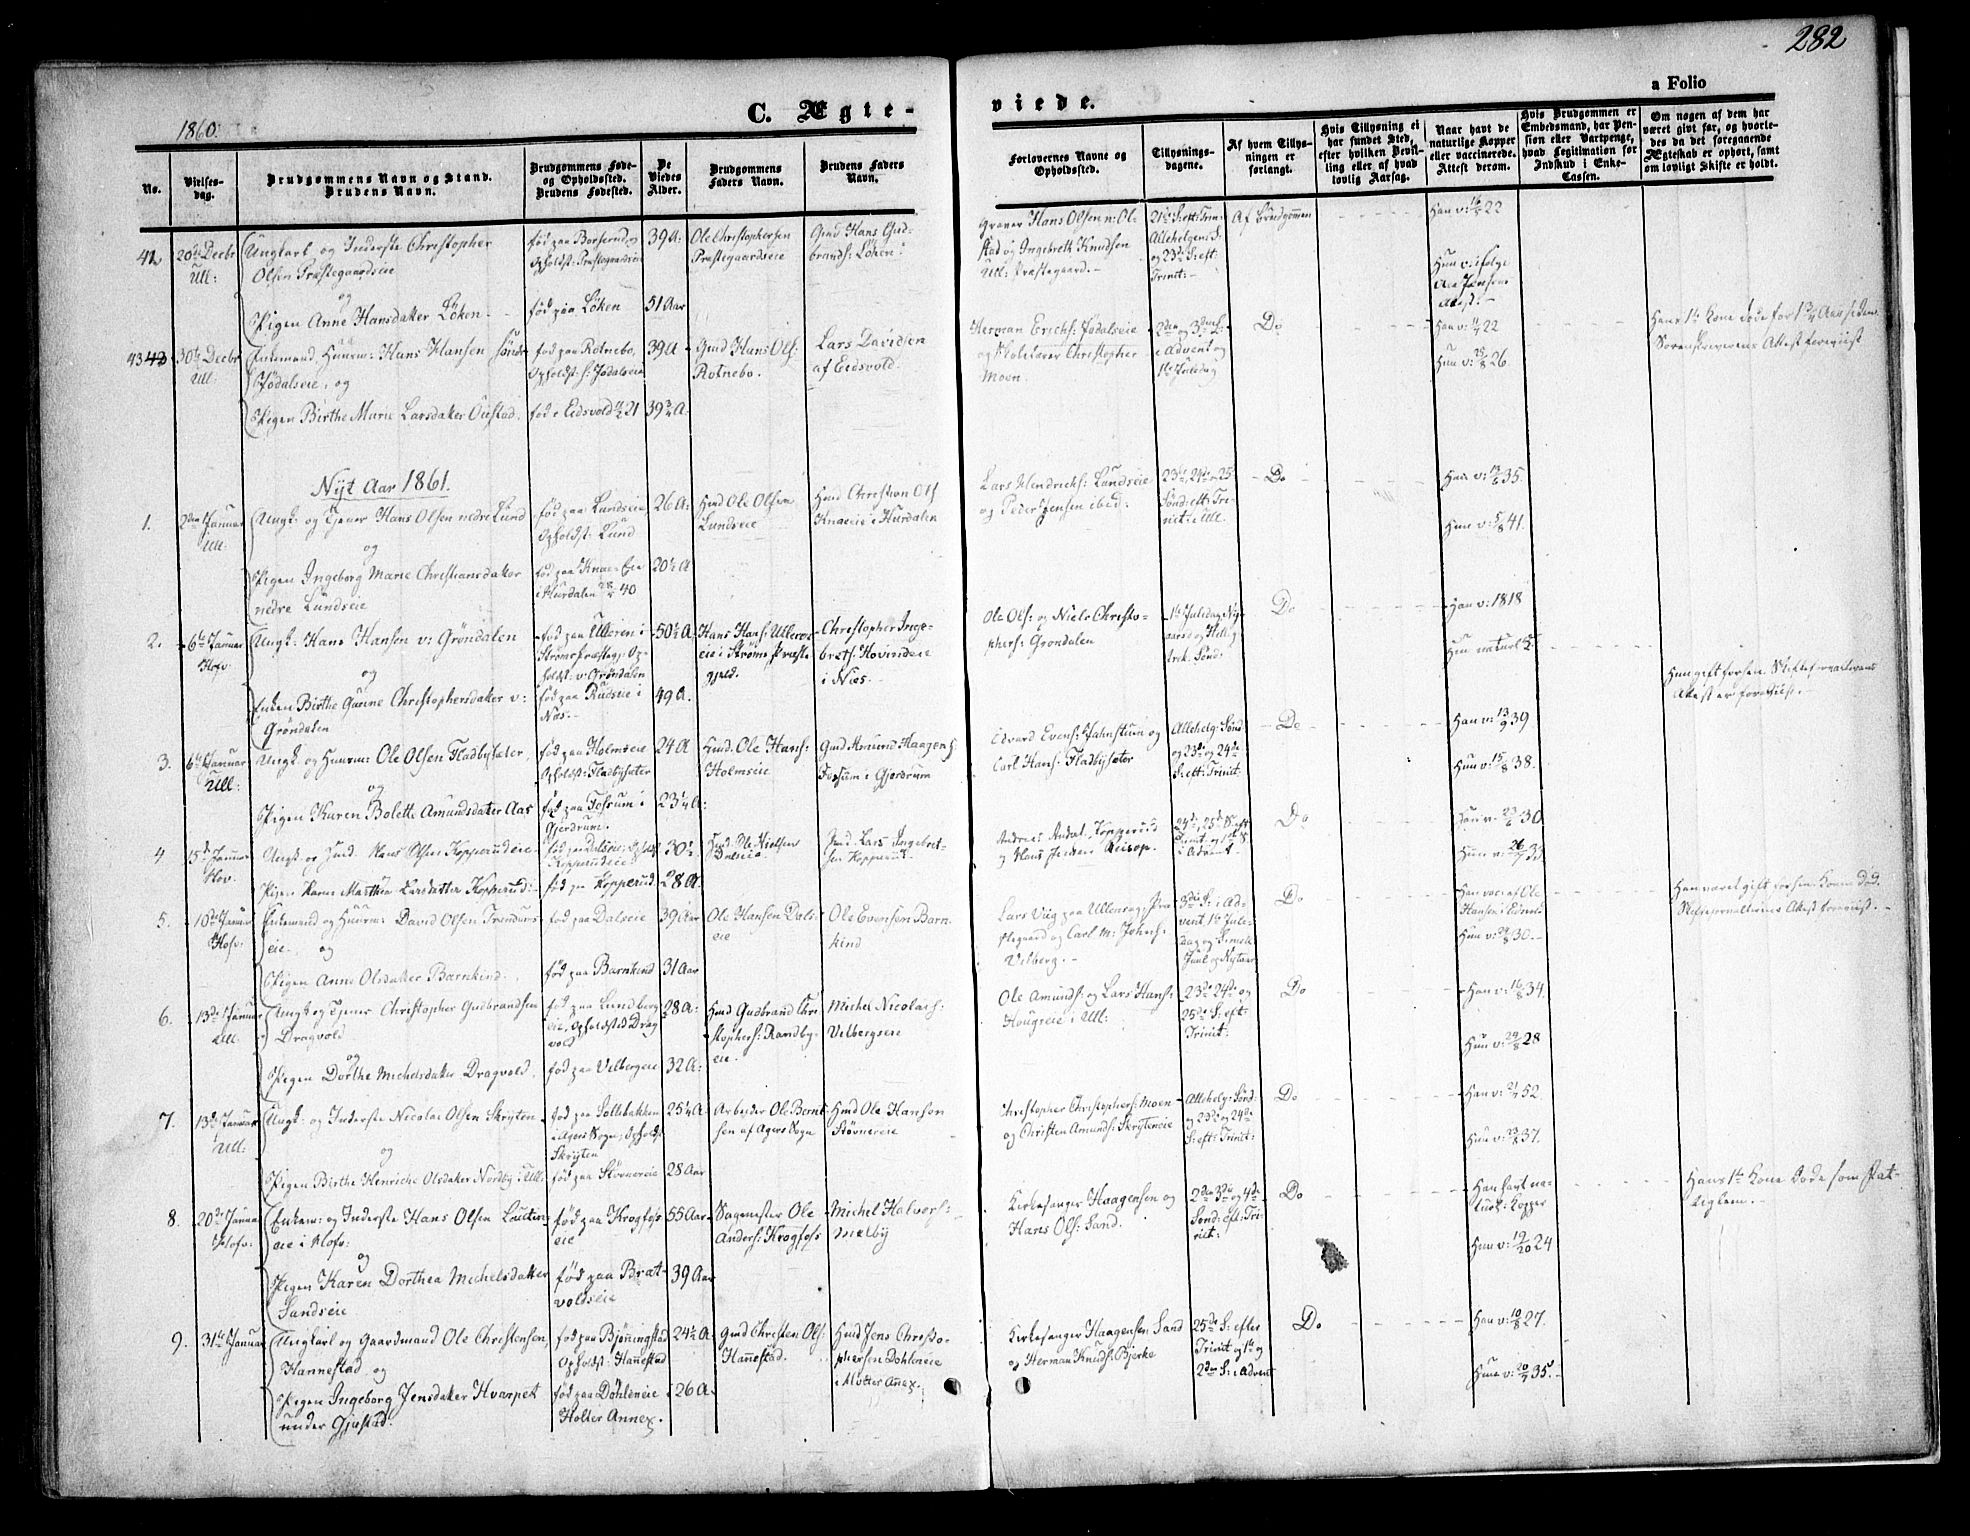 282
a Folio
C. Ægte-
viede.
1860.
No.
Vielses-
dag.
Brudgommens Navn og Stand.
Brudens Navn.
Brudgommens Føde-
og Opholdssted.
Brudens Fødested.
De
Viedes
Alder.
Brudgommens
Faders Navn.
Brudens Faders
Navn.
Forlovernes Navne og
Opholdssted.
Tillysnings-
dagene.
Af hvem Tillys-
ningen er
forlangt.
Hvis Tillysning ei
har fundet Sted,
efter hvilken Bevil-
ling eller af hvad
lovlig Aarsag.
Naar havt de
naturlige Kopper
eller vaccinerede.
Attest derom.
Hvis Brudgommen er
Embedsmand, har Pen-
sion eller Vartpenge,
hvad Legitimation for
Indskud i Enke-
Cassen.
Om nogen af dem har
været gift før, og hvorle-
des da det foregaaende
Ægteskab er ophørt, samt
om lovligt Skifte er holdt.
42
20de Decbr
Ull:
Ungkarl og Inderste Christopher
Olsen Præstegaardseie
og
Pigen Anne Hansdatter Løken
født paa Borserud, og
Opholdst: Præstegaardseie
født paa Løken
39 A:
51 Aar
Ole Christophersen
Præstegaardseie
Gmd Hans Gud-
brands: Løken
Graver Hans Olsen n: Ol-
stad og Ingebreth Knudsen
Ull: Præstegaard.
21de S: eft: Trin:
Allehelgens S:
og 23de S: eft:
Trinit:
Af Brudgommen
Han v: 22
Hun v: ifølge
Attest.
43
30te Decbr
Ull:
Enkemand, Huusm: Hans Hansen søndr
Jødalseie, og
Pigen Birthe Marie Larsdatter Ouestad.
født paa Rotnebo,
Opholdst: s: Jødalseie
født i Eidsvold 21
39 A
39¾ A.
Gmd Hans Ols:
Rotnebo.
Lars Davidsen
af Eidsvold.
Herman Erichs: Jødalseie
og Skolelærer Christopher
Moen.
2den og 3die S:
i Advent og
1ste Juledag
Do
Han v: 22
Hun v: 26.
Hans 1te Kone døde for 1¾ Aar siden
Sorenskriverens Attest foreviist
Nyt Aar 1861.
1.
2den Januar
Ull:
Ungk: og Tjener Hans Olsen nedre Lund
og
Pigen Ingeborg Marie Christiansdatter
nedre Lundseie
født paa Lundseie,
Opholdst: Lund
født paa Knae-Eie
i Hurdalen 40
26 A:
20½ A
Hmd Ole Olsen
Lundseie
Hmd Christian Ols:
Knaeeie i Hurdalen
Lars Hendrichs: Lundseie
og Peder Jensen ibid:
23de, 24de og 25de
Sønd: eft: Tri-
nit: i Ull.
Do
Han v: 35.
Hun v: 5/8 41.
2.
6te Januar
Hof:
Ungk: Hans Hansen v: Grøndalen
og
Enken Birthe Gurine Christophersdatter v:
Grøndalen
født paa Ulleren i
Strøms Præstegj: Op-
holdst: v: Grøndalen
født paa Rudseie i
Næs.
50½ A.
49 A.
Hans Hans: Ulleren-
eie i Strøms Præste
gjeld.
Christopher Inge-
brets: Hovindeie
i Næs.
Ole Ols: og Niels Christo-
phers: Grøndalen
1te Juledag, Nyt-
aarsd. og Hellig
trek. Sønd.
Do
Han v: 1818
Hun naturl K:
Hun gift før sen. Skifteforvalterens
Attest er foreviist.
3.
6te Januar
Ull:
Ungk: og Huusm: Ole Olsen Fladbysæter,
og
Pigen Karen Bolette Amundsdatter Aas
født paa Holmseie
Opholdst: Fladbysæter
født paa Fossum i
Gjerdrum.
24 A
23¼ A:
Hmd. Ole Hans:
Holmseie
Gmd Amund Haagens:
Fossum i Gjerdrum
Edvard Evens: Jahnstuen og
Carl Hans: Fladbysæter
Allehelg: Sønd:
og 23de og 24de
S: eft: Trinit:
Do
Han v: 13/9 39
Hun v: 15/8 38.
4
5te Januar
Hov.
Ungk: og Hmd. Hans Olsen Kopperudeie
Pigen Karen Marthea Larsdatter Kopperud:
født paa Kopperud
30½
28 A.
Hmd. Ole Nielsen
Dalseie
Hmd. Lars Ingebret-
sen Kopperud.
24de, 25de S: eft
Trinit: og 1ste S:
i Advent.
Do
Han v: 30
Hun v: 33
5.
10de Januar
Hof:
Enkemand og Huusm: David Olsen Trandums
eie, og
Pigen Anne Olsdatter Barnkind.
født paa Dalseie
født paa Barnkind
39 Aar
31 Aar
Ole Hansen Dals-
eie
Ole Evensen Barn-
kind
Lars Viig paa Ullensag: Præ-
stegaard og Carl M: Johns:
Vilberg.
3die S: i Ad-
vent, 1te Jule-
dag og S: mell:
Juul og Nytaar
Do
Han vac: af Ole
Hansen i Eidsvold
Hun v: 30.
Han været gift før sen. Konen død.
Skifteforvalterens Attest foreviist.
6.
13de Januar
Ull.
Ungk: og Tjener Christopher Gudbrandsen
Dragvold
og
Pigen Dorthe Michelsdatter Dragvold.
født paa Lundberg
eie, Opholdssted Drag
vold
født paa Vilbergeie
28 A:
32 A:
Hmd Gudbrand Chri-
stophers: Randby-
eie.
Michel Nicolais:
Vilbergseie
Ole Amunds: og Lars Hans:
Hougseie i Ull:
23de 24de og
25de S: eft-
Trinit:
Do
Han v: 16/8 34.
Hun v: 24/8 28
7.
13de Januar
Ull:
Ungk: og Inderste Nicolai Olsen Skryten
og
Pigen Birthe Henriche Olsdatter Nordby i Ull:
født paa Sollibakken
i Agers Sogn, Opholdst
Skryten
født paa Støvnereie
25¼ A:
28 Aar
Arbeider Ole Bernt-
sen af Agers Sogn
Hmd Ole Hansen
Støvnereie
Christopher Christophers: Moen
og Christen Amunds: Skryteneie
Allehelg: Sønd:
og 23de og 24de
S: eft: Trinit:
Do
Han v: 52
Hun v: 23/8 37.
8.
20de Januar
Hof:
Enkem: og Inderste Hans Olsen Lutten-
eie i Hof:
og
Pigen Karen Dorthea Michelsdatter
Sandseie
født paa Krogfoss
eie
født paa Brat-
voldseie
55 Aar
39 Aar
Sagmester Ole
Anders: Krogfoss
Michel Halvors:
Melby
Kirkesanger Haagensen og
Hans Ols: Sand.
2den 3die og 4de
Sønd: eft: Tri-
nit:
Do
Han havt na-
turl: Kopper
Hun v: 19/20 24
Hans 1te Kone døde som fat-
tiglem.
9.
31te Januar
Ungkarl og Gaardmand Ole Christensen,
Hannestad, og
Pigen Ingeborg Jensdatter Hvarpet
under Gjestad.
født paa Bjønningstad
Opholdst: Hannestad
født paa Döhleneie
Holter Annex.
24½ A:
26 A.
Gmd Christen Ols:
Hannestad.
Hmd Jens Christo-
phersen Döhleneie
i Holter Annex.
Kirkesanger Haagensen Sand
og Herman Knuds: Bjerke
25de S: efter
Trinit og 1te og
2den S: i Advent
Do
Han v: 10/8 27.
Hun v: 35.